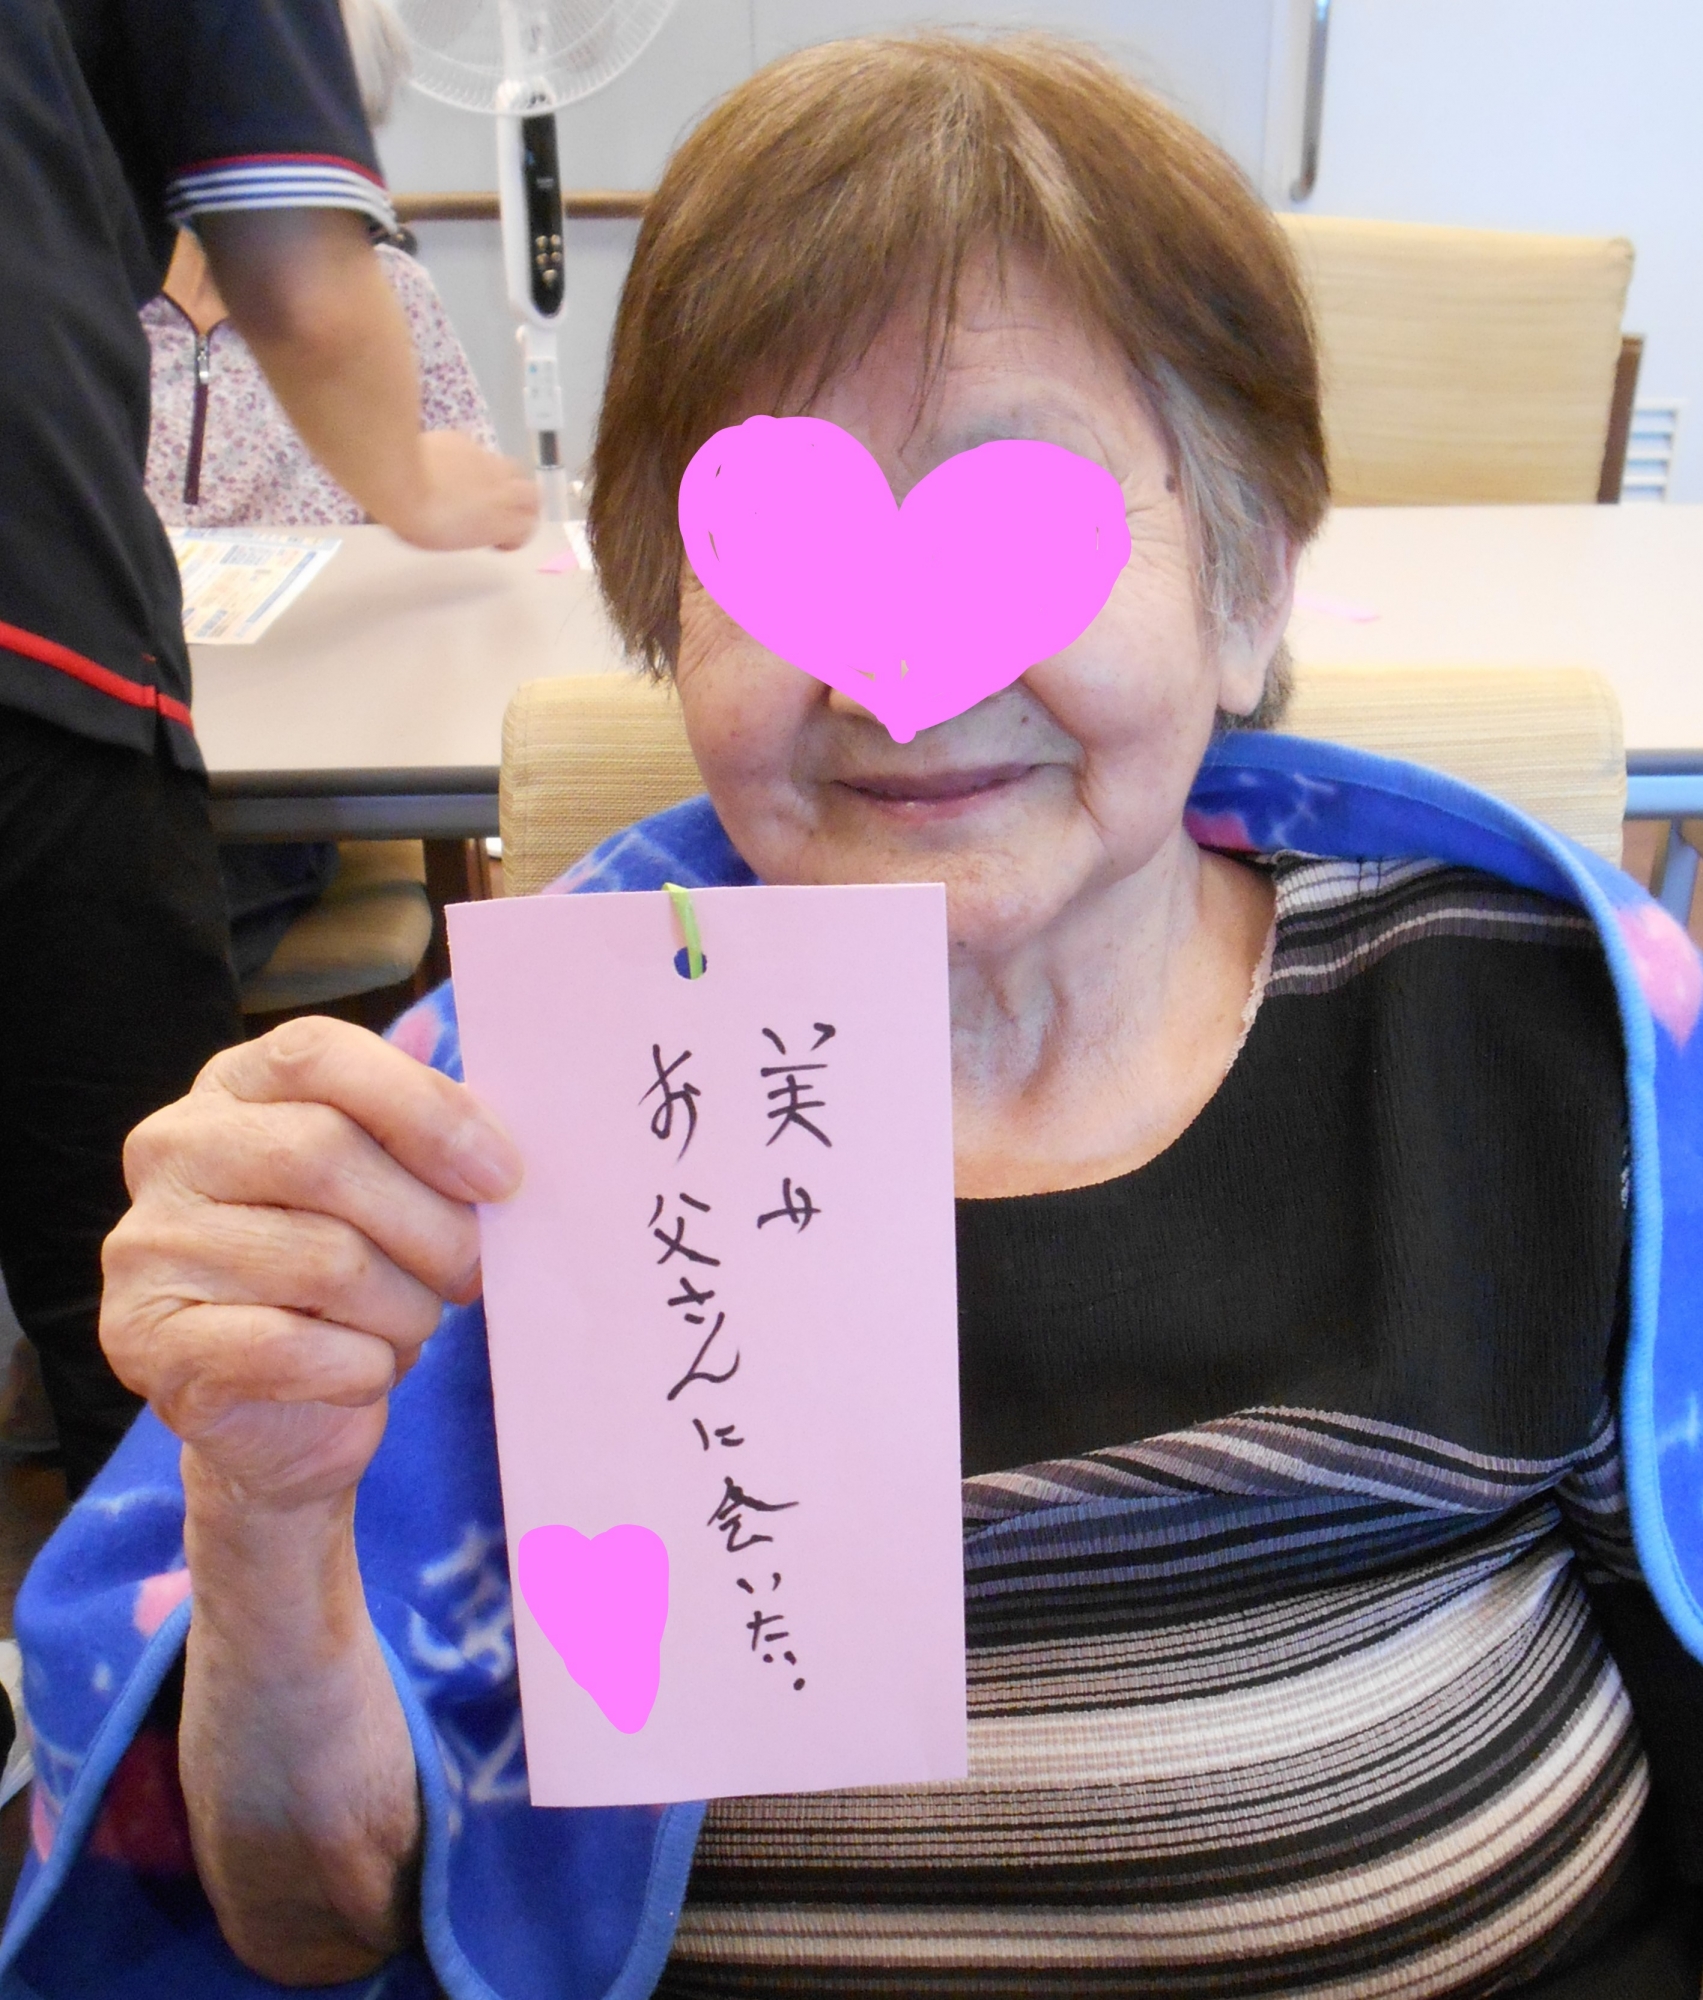 美女
お父さんに会いたい。